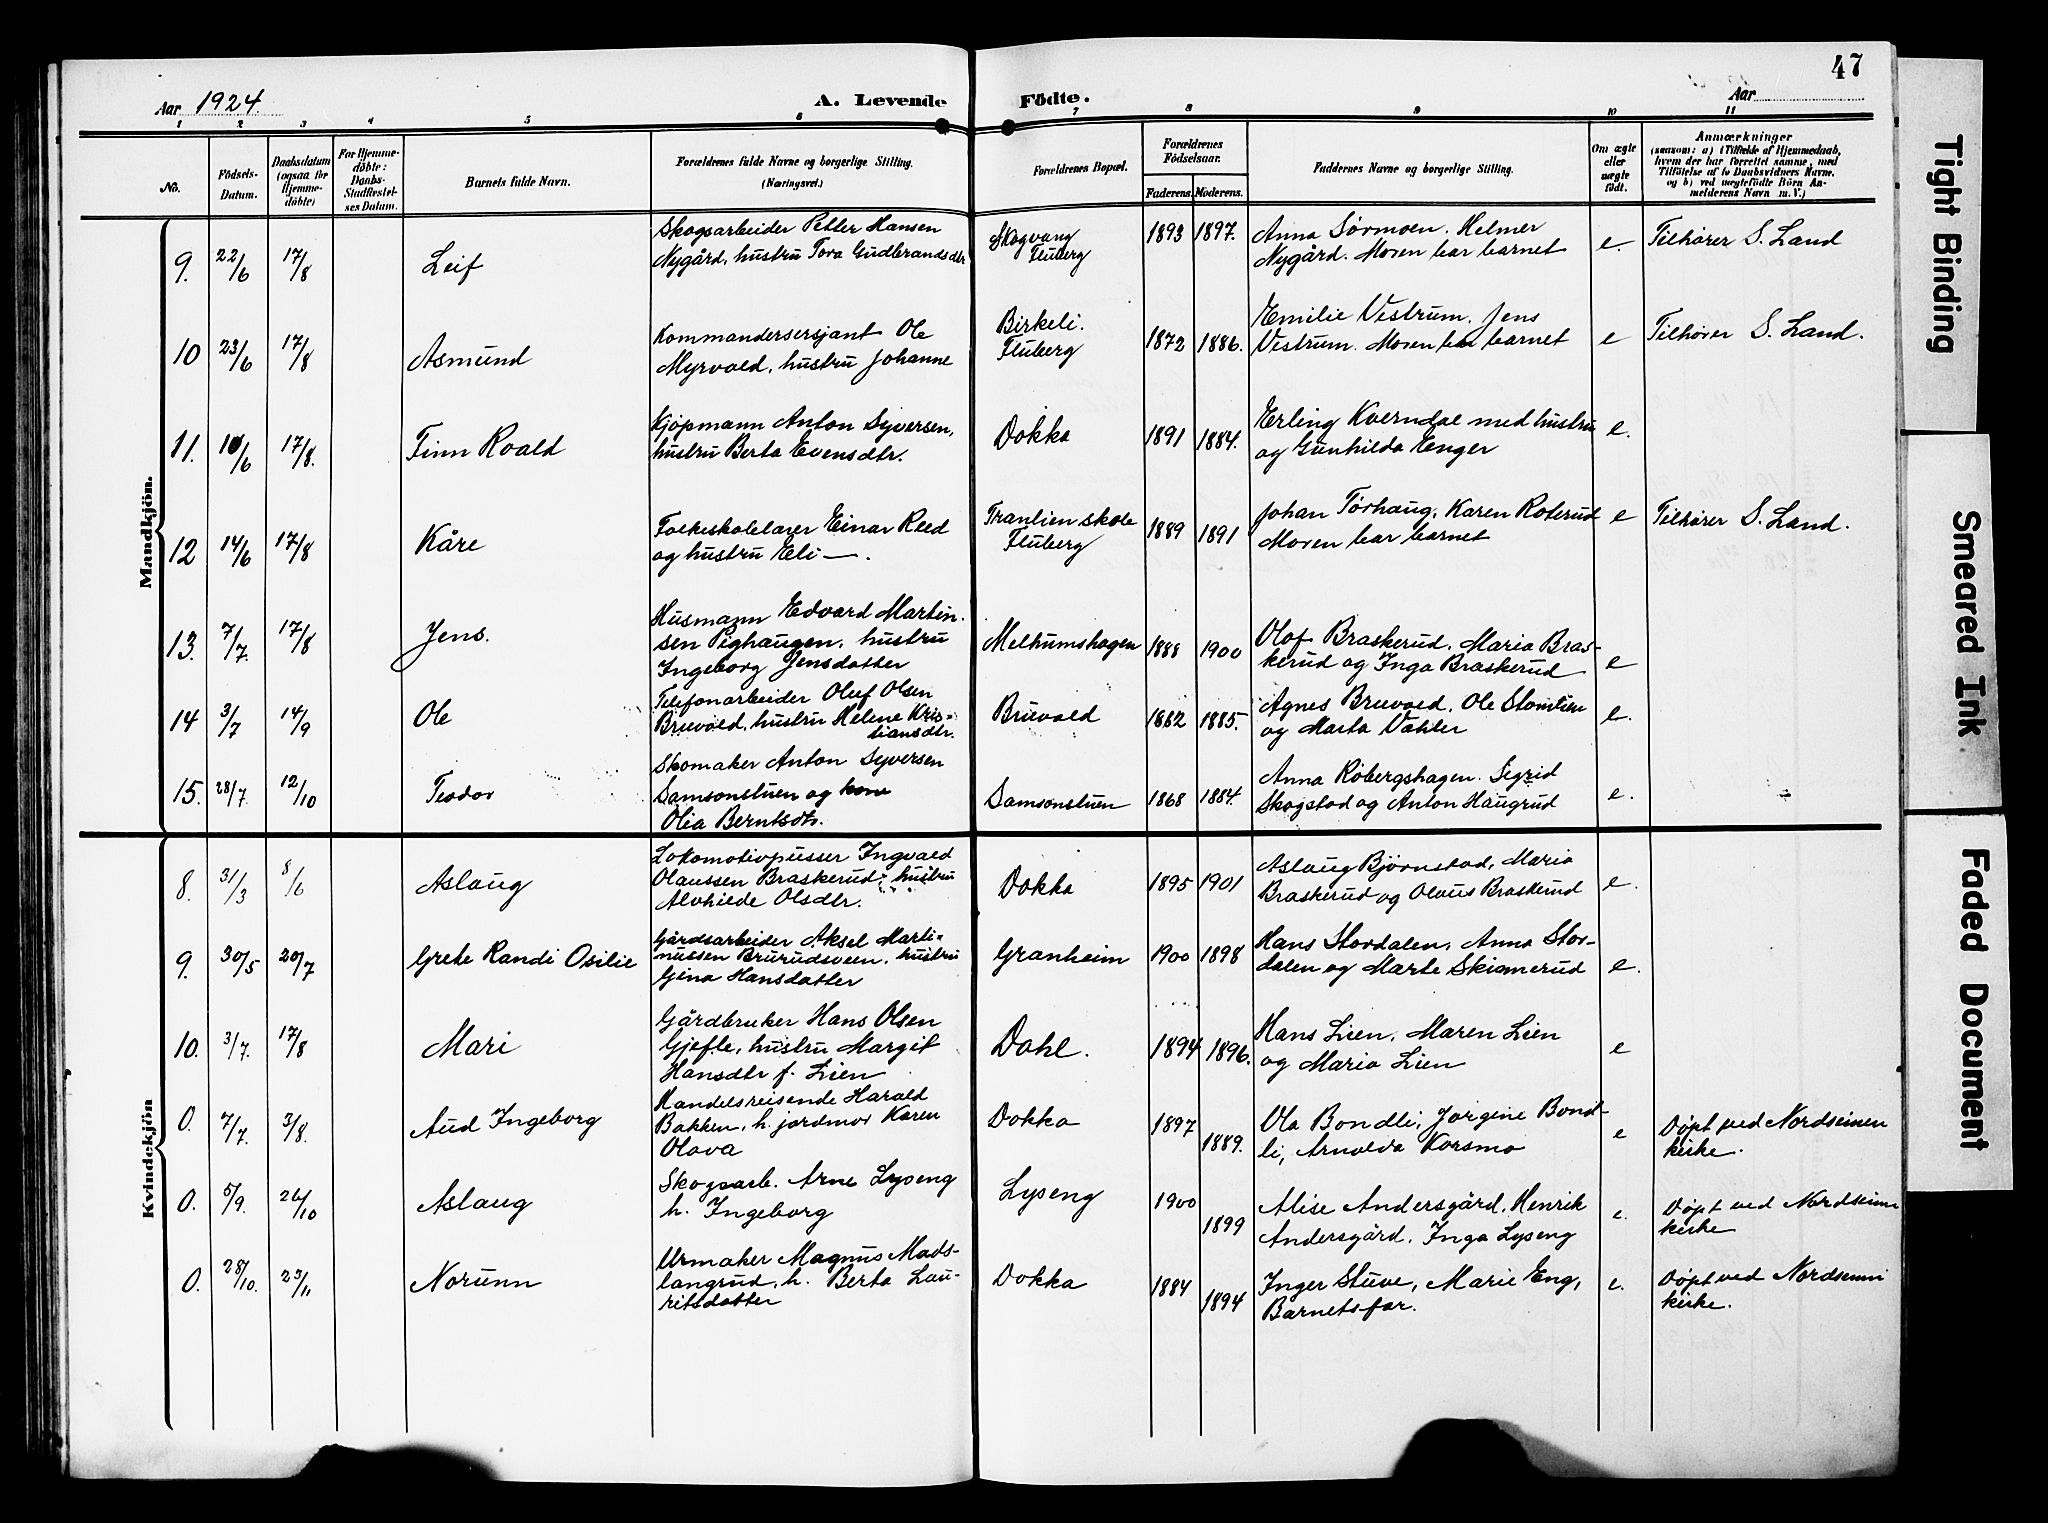 47
Aar 1924.
A. Levende Födte.
Aar
1 2 3 4 5 6 7 8 9 10 11
No.
Födsels-Datum.
Daabsdatum (ogsaa for Hjemmedöbte)
For Hjemmedöbte: Daabs-Stadfæstelses Datum.
Barnets fulde Navn.
Forældrenes fulde Navne og borgerlige Stilling. (Næringsvei.)
Forældrenes Bopæl.
Forældrenes Födselsaar.
Faderens. Moderens.
Faddernes Navne og borgerlige Stilling.
Om ægte eller uægte födt.
Anmærkninger
(saasom: a) i Tilfælde af Hjemmedaab, hvem der har forrettet samme, med Tilföielse af to Daabsvidners Navne, og b) ved uægtefödte Börn Anmelderens Navn m. V.)
Mandkjön.
9. 22/6 17/8 Leif
Skogsarbeider Petter Hansen
Nygård, hustru Tora Gudbrandsdtr
Skogvang
Fluberg
1893 1897.
Anna Sørmoen. Helmer
Nygård. Moren bar barnet
e. Tilhører S. Land
10 23/6 17/8 Asmund
Kommandersersjant Ole
Myrvold, hustru Johanne
Birkeli.
Fluberg
1872 1886.
Emilie Vestrum. Jens
Vestrum. Moren bar barnet
e Tilhører S. Land.
11. 10/6 17/8. Finn Roald
Kjøpmann Anton Syversen,
hustru Berta Evensdtr.
Dokka
1891 1884.
Erling Kverndal med hustru
og Gunhilda Enger
e.
12 14/6 17/8 Kåre
Folkeskolelærer Einar Reed
og hustru Eli —.
Tranlien skole
Fluberg
1889 1891
Johan Tørhaug, Karen Roterud
Moren bar barnet
e Tilhører S. Land.
13. 7/7. 17/8 Jens.
Husmann Edvard Martin.
sen Pighaugen, hustru
Ingeborg Jensdatter
Melhumshagen
1888 1900
Olof Braskerud, Maria Bras-
kerud og Inga Braskerud
e
14 3/7 14/9 Ole
Telefonarbeider Oluf Olsen
Bruvold, hustru Helene Kris=
tiansdtr.
Bruvold
1882 1885.
Agnes Bruvold, Ole Stomlien
og Marta Vahler
e.
15. 28/7. 12/10 Teodor
Skomaker Anton Syversen
Samsonstuen og kone
Olia Berntsdtr.
Samsonstuen
1868 1884.
Anna Robergshagen. Sigrid
Skogstad og Anton Haugrud
e.
Kvindekjön
8. 31/3 8/6 Aslaug
Lokomotivpusser Ingvald
Olaussen Braskerud, hustru
Alvhilde Olsdtr.
Dokka
1895 1901
Aslaug Bjørnstad, Maria
Braskerud og Olaus Braskerud
e.
9. 30/5 20/7 Grete Randi Osilie
Gårdsarbeider Aksel Marti=
nussen Brurudsveen, hustru
Gina Hansdatter
Granheim
1900 1898
Hans Stordalen, Anna Stor-
dalen og Marte Skiamerud
e.
10. 3/7. 17/8 Mari
Gårdbruker Hans Olsen
Gjefle, hustru Margit
Hansdtr f. Lien
Dahl.
1894 1896.
Hans Lien, Maren Lien
og Maria Lien
e
0. 7/7. 3/8. Aud Ingeborg
Handelsreisende Harald
Bakken, h. jordmor Karen
Olava
Dokka
1897
1889.
Ola Bondli, Jørgine Bond-
li, Arnolda Korsmo
e
Døpt ved Nordsinnen
kirke.
0. 5/9. 26/10 Aslaug
Skogsarb. Arne Lyseng
h. Ingeborg
Lyseng
1900
1899
Alise Andersgård, Henrik
Andersgård, Inga Lyseng
e.
Døpt ved Nordsinni
kirke
0. 28/10. 23/11 Norunn
Urmaker Magnus Mads-
langrud, h. Berta Lau-
ritsdatter
Dokka
1884
1894
Inger Stuve, Marie Eng,
Barnets far.
e.
Døpt ved Nordsinni
kirke.
Tight Binding
Smeared Ink
Faded Document